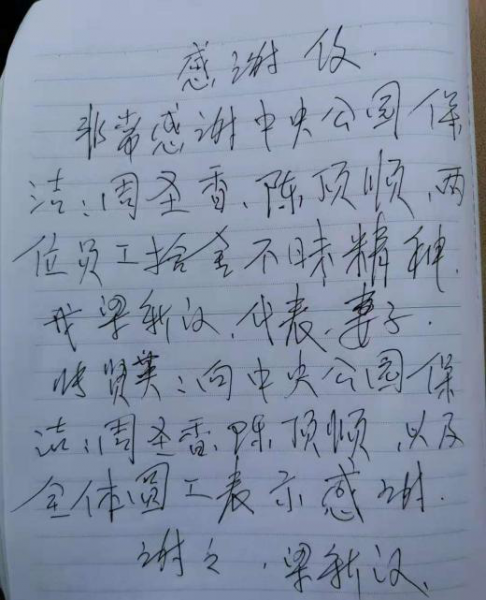 感谢信.
非常感谢中央公园保
洁:周圣香、陈顶顺、两
位员工拾金不昧精神.
我梁新汉.代表.妻子.
贤英:向中央公园保
洁:周圣香、陈顶顺、以及
全体圆工表示感谢.
谢々.梁新汉.